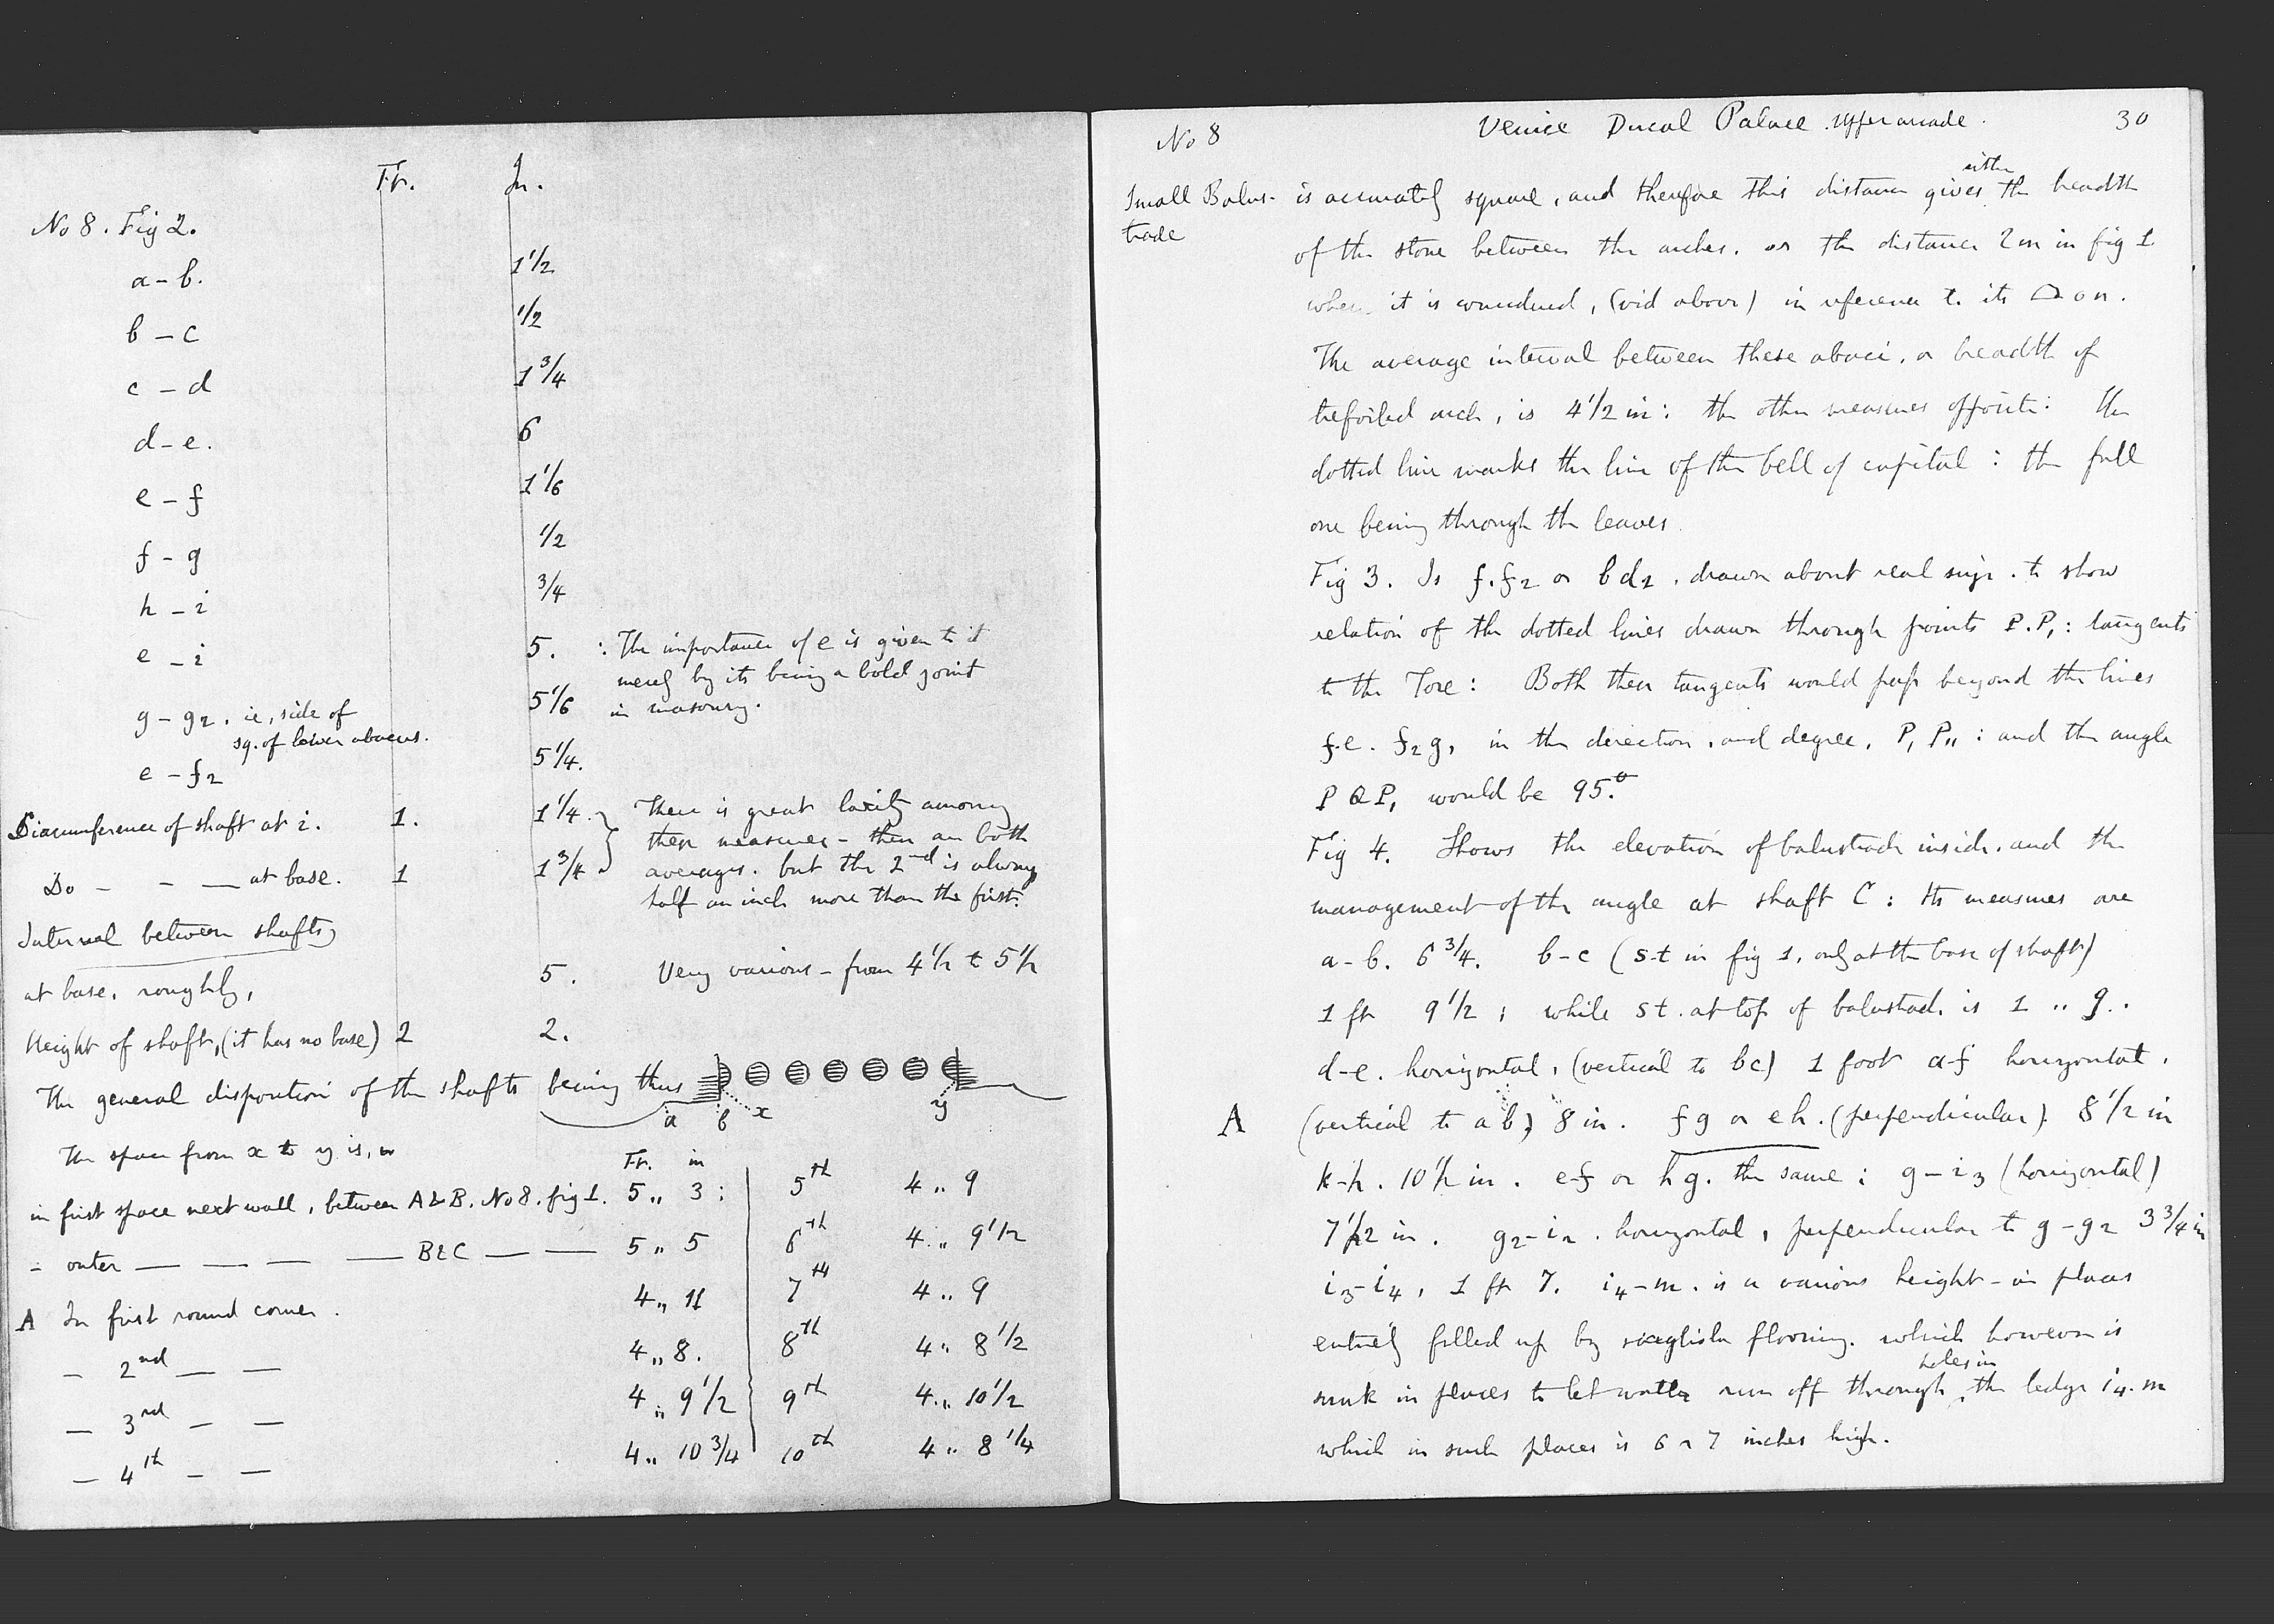 Ft. In.
No 8. Fig 2.
a - b. 1 1/2
b - c 1/2
c - d 1 3/4
d - e. 6
e - f 1 1/6
f - g 1/2
h - i 3/4
e - i 5. : The importance of e is given to it
merely by its being a bold joint
in masonry.
g - g2. ie, side of 5 1/6
sq. of lower abacus.
e - f2 5 1/4.
Circumference of shaft at i. 1. 1 1/4. There is great laxity among
these measures - these are both
Do - - — at base. 1 1 3/4 averages. but the 2nd is always
half an inch more than the first.
Interval between shafts
at base. roughly, 5. Very various - from 4 1/2 to 5 1/2
Height of shaft, (it has no base) 2 2.
The general disposition of the shafts being thus
a b x y
The space from x to y is, in
Ft. in
in first space next wall, between A & B. No 8. fig 1. 5 ,, 3 : 5th 4 ,, 9
- outer — — — — B & C — — 5 ,, 5 6th 4 ,, 9 1/2
A In first round corner. 4 ,, 11 7th 4 ,, 9
- 2nd — — 4 ,, 8. 8th 4 ,, 8 1/2
- 3rd - — 4 ,, 9 1/2 9th 4 ,, 10 1/2
- 4th - — 4 ,, 10 3/4 10th 4 ,, 8 1/4
No 8 Venice Ducal Palace. Upper arcade. 30
Small Balus-
trade
is accurately square, and therefore this distance gives either the breadth
of the stone between the arches. or the distance l m in fig 1
when it is considered, (vid above) in reference to its on.
The average interval between these abaci, or breadth of
trefoiled arch, is 4 1/2 in: the other measures opposite: the
dotted line marks the line of the bell of capital: the full
one being through the leaves.
Fig 3. Is f. f2 or b d2. drawn about real size. to show
relation of the dotted lines drawn through points P. P,: tangents
to the Tore: Both these tangents would pass beyond the lines
f. e. f2 g, in the direction, and degree, P, P,,: and the angle
P Q P, would be 95.°
Fig 4. Shows the elevation of balustrade inside. and the
management of the angle at shaft C: Its measures are
a - b. 6 3/4. b - c (s-t in fig 1, only at the base of shaft)
1 ft 9 1/2; while s t. at top of balustrade. is 1 ,, 9.
d-e. horizontal, (vertical to bc) 1 foot a-f horizontal,
A (vertical to a b) 8 in. f g or e h. (perpendicular). 8 1/2 in
k-h. 10 1/2 in. e-f or h g. the same: g - i3 (horizontal)
7 1/2 in. g2 - i2. horizontal, perpendicular to g - g2 3 3/4 in
i3-i4, 1 ft 7. i4-m. is a various height - in places
entirely filled up by flooring. which however is
sunk in places to let water run off through holes in the ledge i4. m
which in such places is 6 or 7 inches high.